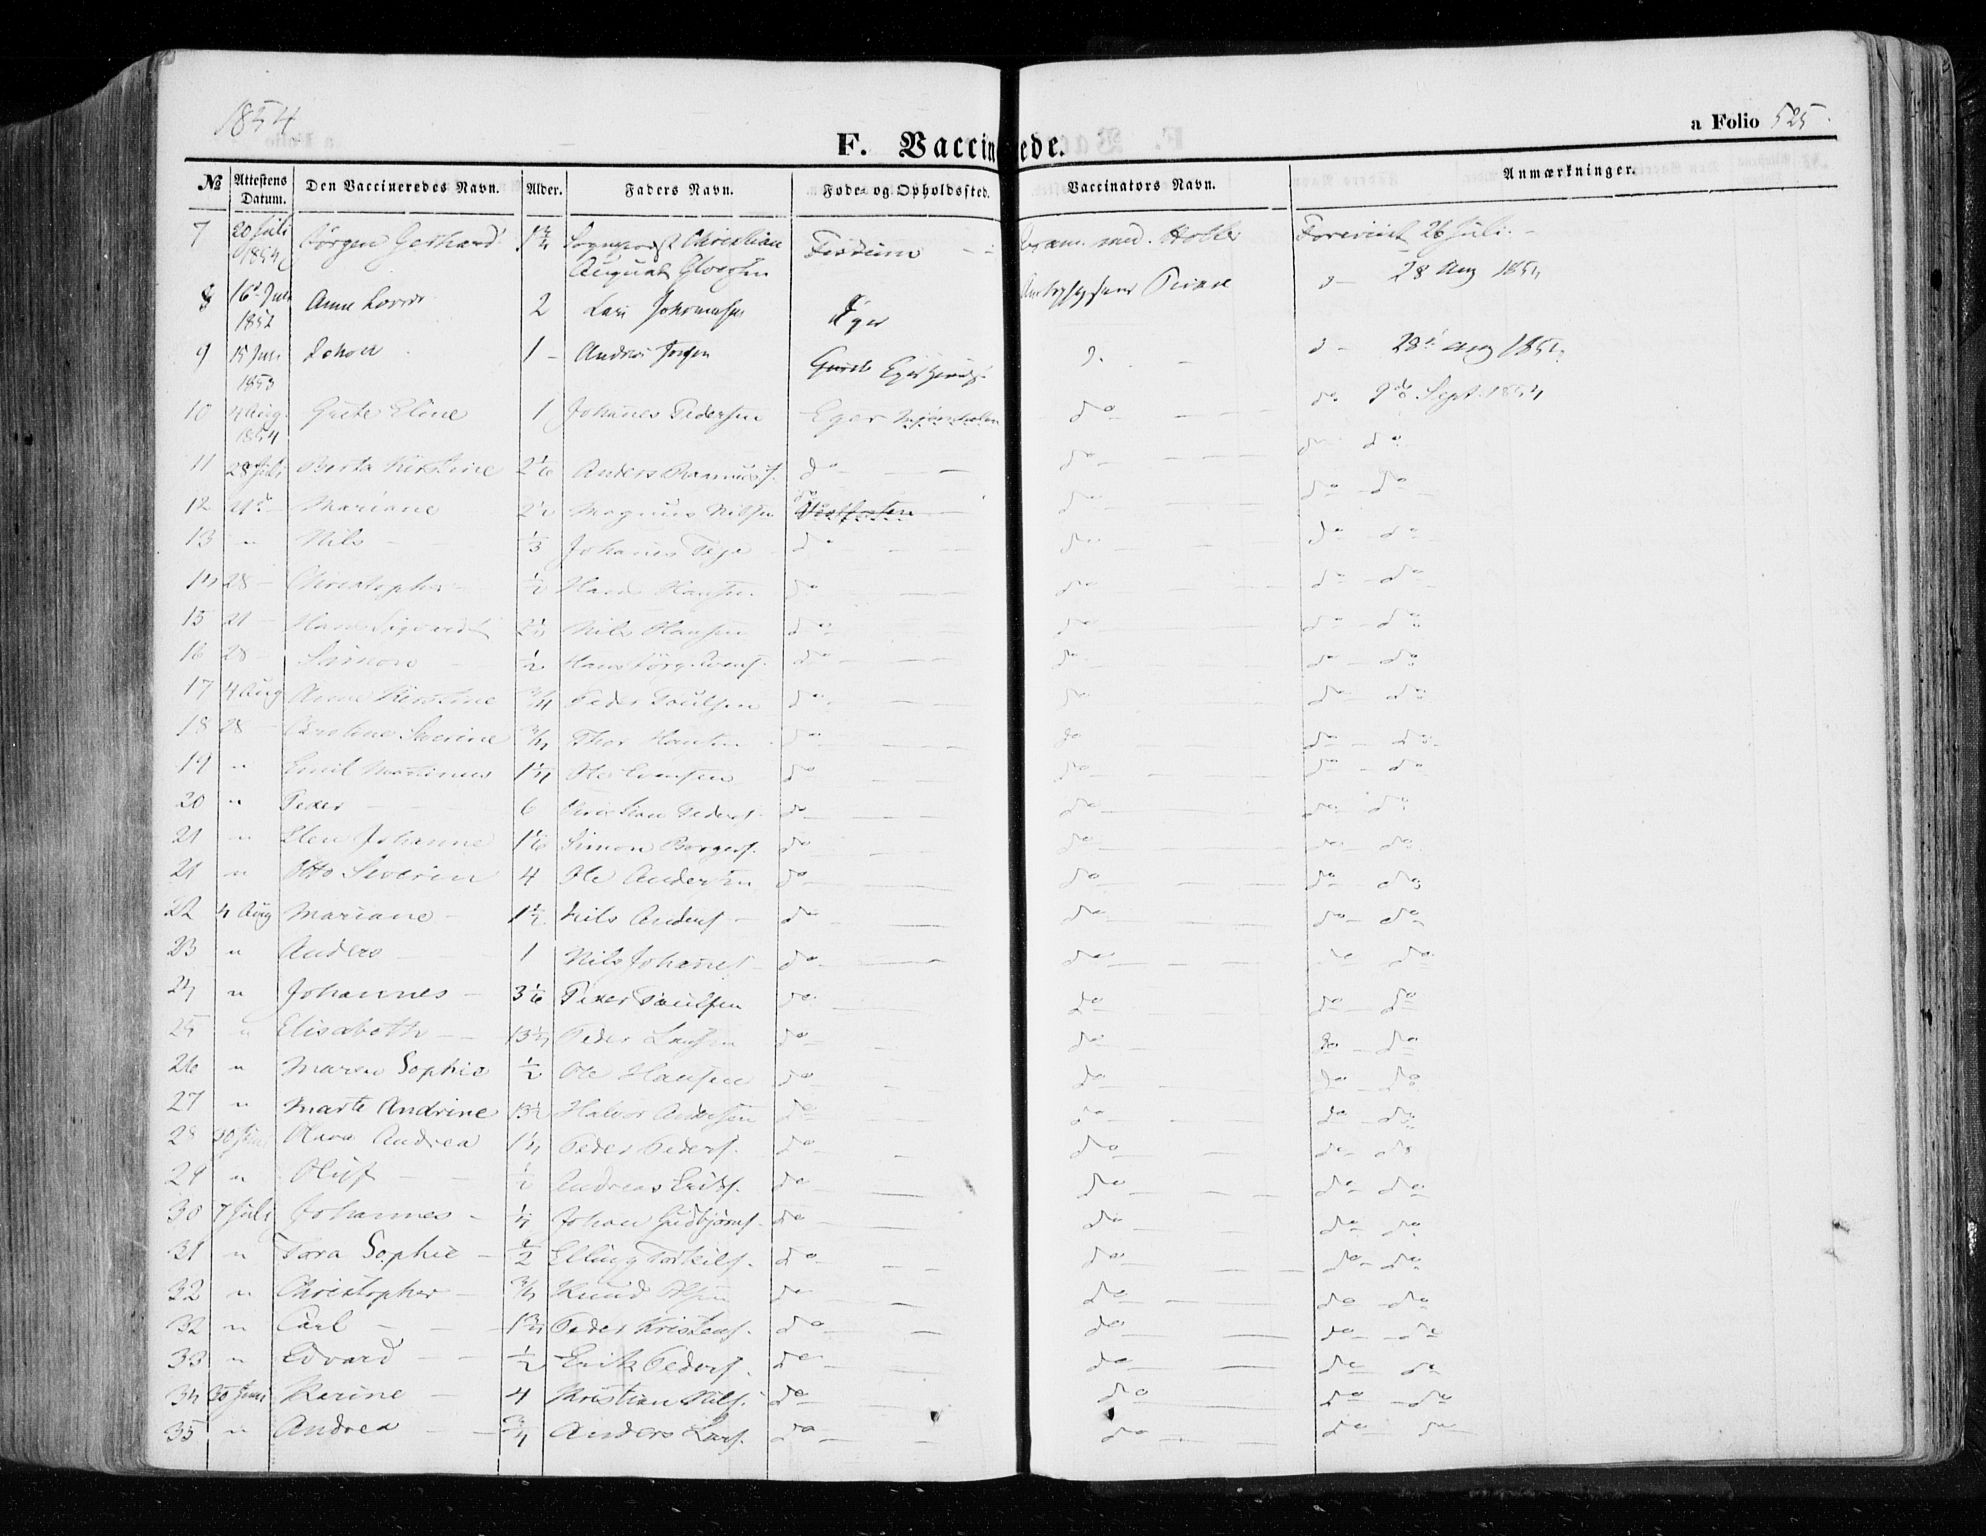 1854
a Folio 525.
F. Vaccinerede.
№ Attestens Datum. Den Vaccineredes Navn. Alder. Faders Navn. Føde- og Opholdssted. Vaccinators Navn. Anmærkninger.
7 20 Juli 1854 Jørgen Gerhard 1 3/4 Christian August Foreviist 26 Juli
8 16 1852 Anne 2 Lars Eger d- 28 Aug 1854
9 15 1853 Johan 1 - Andreas Eger d. - d- 28 Aug 1854
10 4 Aug. 1854 Grete Eline 1 Johanes Pedersen Eger do do 9de Sept. 1854
11 28 Juli Berta Kirstine 2 1/6 Anders Rasmuss. do do do do
12 21 - Mariane Magnus Nilsen do do do do
13 " Nils 1/3 Johanes do do do do
14 28 - Christopher 1/2 Hans Hansen do do do do
15 21 - Hans Sigvardt Nils Hansen do do do do
16 28 - Simon 1/2 Hans do do do do
17 4 Aug Anne Kirstine 3/4 Peder Poulsen do do do do
18 28 - Severine 3/4 Thor Hansen do do do do
19 " Emil Martinus 1 1/4 Ole Evensen do do do do
20 " Peder 6 Christian Peders. do do do do
21 " Elen Johanne 1 1/6 Simon Borgers. do do do do
21 " Otto Severin 4 Ole Andersen do do do do
22 4 Aug Mariane 1 1/2 Nils Anders. do do do do
23 " Anders 1 Nils Johanes. do do do do
24 " Johannes 3 1/6 Peder Poulsen do do do do
25 " Elisabeth 13 1/4 Peder Larsen do do do do
26 " Maren Sophie 1/2 Ole Hansen do do do do
27 " Marte Andrine 13 1/2 Halvor Andersen do do do do
28 30 Juni Andrea 1 1/4 Peder Peders. do do do do
29 " Oluf Andreas Eriks. do do do do
30 7 Juli Johannes 1/4 Johan Gudbjørns. do do do do
31 " Tora Sophie 1/2 Elling Torkils. do do do do
32 " Christopher 3/4 Knud Olsen do do do do
32 " Carl 1 3/4 Peder Kristens. do do do do
33 " Edvard 1/2 Erik Peders. do do do do
34 30 Juni Karine 4 Kristian Nils. do do do do
35 " Andrea 3/4 Anders Lars. do do do do